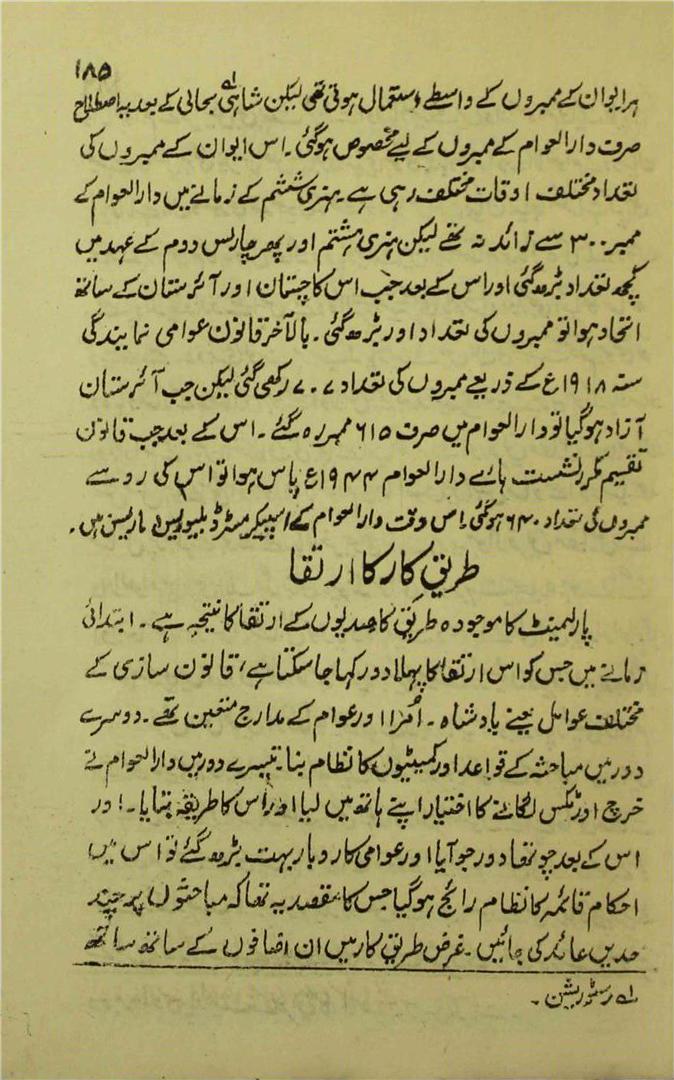 ۱۸۵
ہر ایوان کے ممبروں کے واسطے استعمال ہوتی تھی لیکن شاہی بحالی کے بعد یہ اصطلاح
صرف دارالعوام کے ممبروں کے لیے مخصوص ہوگئی۔ اس ایوان کے ممبروں کی
تعداد مختلف اوقات مختلف رہی ہے۔ ہنری ششم کے زمانے میں دارالعوام کے
ممبر ۳۰۰ سے زائد نہ تھے لیکن ہنری ہشتم اور پھر چارلس دوم کے عہد میں
کچھ تعداد بڑھ گئی اور اس کے بعد جب اسکاچستان اور آئرستان کے ساتھ
اتحاد ہوا تو ممبروں کی تعداد اور بڑھ گئی۔ بالآخر قانون عوامی نمایندگی
سنہ ۱۹۱۸ع کے ذریعے ممبروں کی تعداد ۷۰۷ رکھی گئی لیکن جب آئرستان
آزاد ہوگیا تو دارالعوام میں صرف ۶۱۵ ممبر رہ گئے۔ اس کے بعد جب قانون
تقسیم مکرر نشست ہائے دارالعوام ۱۹۴۴ع پاس ہوا تو اس کی رو سے
ممبروں کی تعداد ۶۴۰ ہوگئی۔ اس وقت دارالعوام کے اسپیکر مسٹر ڈبلیو ایس ماریسن ہیں۔
طریقِ کار کا ارتقا
پارلیمنٹ کا موجودہ طریق کار صدیوں کے ارتقا کا نتیجہ ہے۔ ابتدائی
زمانے میں جس کو اس ارتقا کا پہلا دور کہا جا سکتا ہے، قانون سازی کے
مختلف عوامل یعنے بادشاہ۔ اُمرا اور عوام کے مدارج متعین تھے۔ دوسرے
دور میں مباحثہ کے قواعد اور کمیٹیوں کا نظام بنا۔ تیسرے دور میں دارالعوام نے
خرچ اور ٹکس لگانے کا اختیار اپنے ہاتھ میں لیا اور اس کا طریقہ بتایا۔ اور
اس کے بعد چوتھا دور جو آیا اور عوامی کاروبار بہت بڑھ گئے تو اس میں
احکام قائمہ کا نظام رائج ہوگیا جس کا مقصد یہ تھا کہ مباحثوں پر چند
حدیں عائد کی جائیں۔ غرض طریق کار میں ان اضافوں کے ساتھ ساتھ
لے رسٹوریشن۔